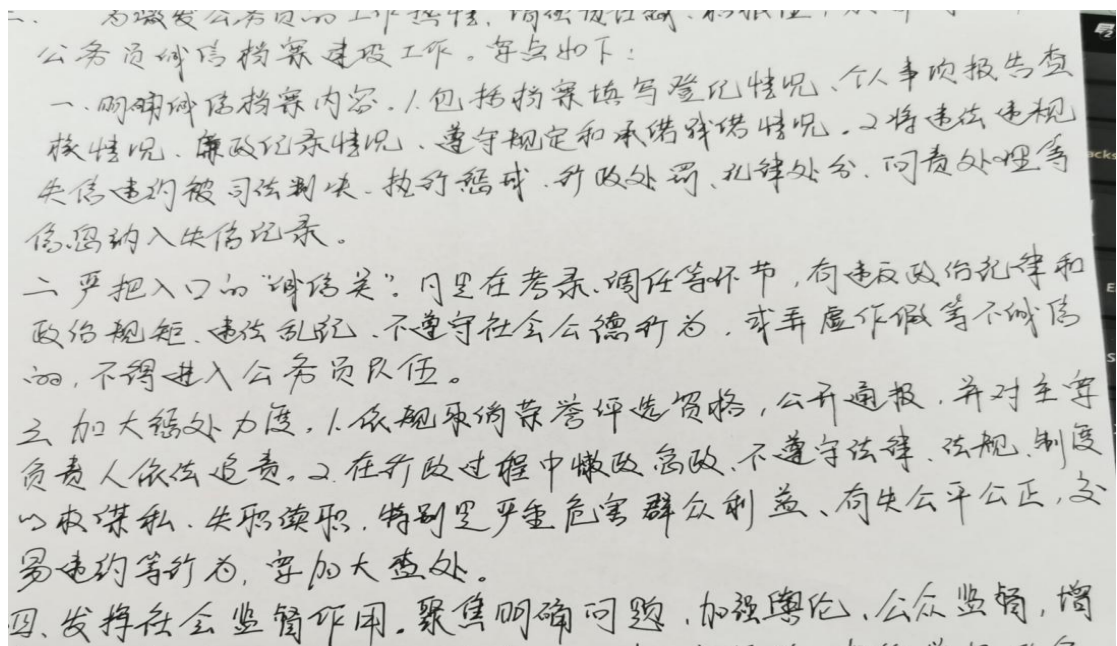 为激发公务员的工作热情、增强责任感、积极性
公务员诚信档案建设工作。要点如下：
一、明确诚信档案内容。1.包括档案填写登记情况、个人事项报告查
核情况、廉政记录情况、遵守规定和承诺践诺情况。2.将违法违规
失信违约被司法判决、执行惩戒、行政处罚、纪律处分、问责处理等
信息纳入失信记录。
二、严把入口的“诚信关”。凡是在考录、调任等环节，有违反政治纪律和
政治规矩、违法乱纪、不遵守社会公德行为，或弄虚作假等不诚信
的，不得进入公务员队伍。
三、加大惩处力度。1.依规取消荣誉评选资格，公开通报，并对主要
负责人依法追责。2.在行政过程中懒政怠政、不遵守法律、法规、制度
以权谋私、失职渎职，特别是严重危害群众利益、有失公平公正，交
易违约等行为，要加大查处。
四、发挥社会监督作用。聚焦明确问题，加强舆论、公众监督，增